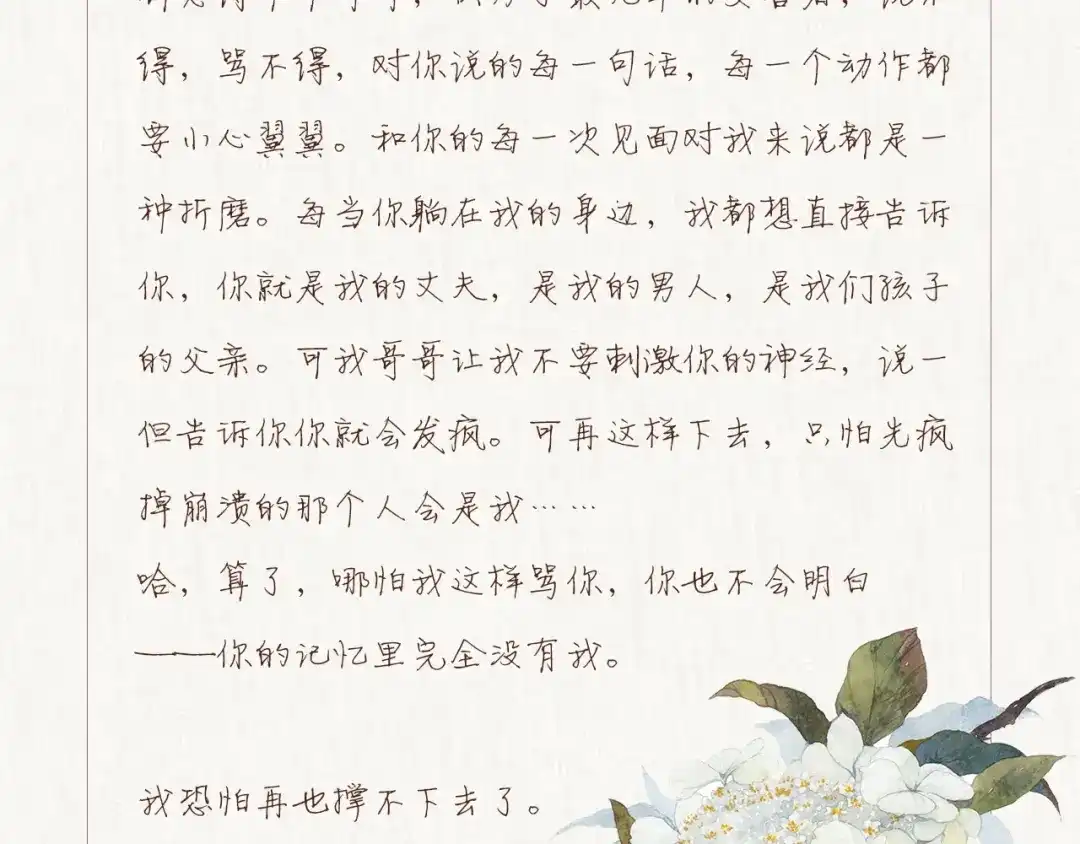 得，骂不得，对你说的每一句话，每一个动作都
要小心翼翼。和你的每一次见面对我来说都是一
种折磨。每当你躺在我的身边，我都想直接告诉
你，你就是我的丈夫，是我的男人，是我们孩子
的父亲。可我哥哥让我不要刺激你的神经，说一
但告诉你你就会发疯。可再这样下去，只怕先疯
掉崩溃的那个人会是我……
哈，算了，哪怕我这样骂你，你也不会明白
——你的记忆里完全没有我。
我恐怕再也撑不下去了。